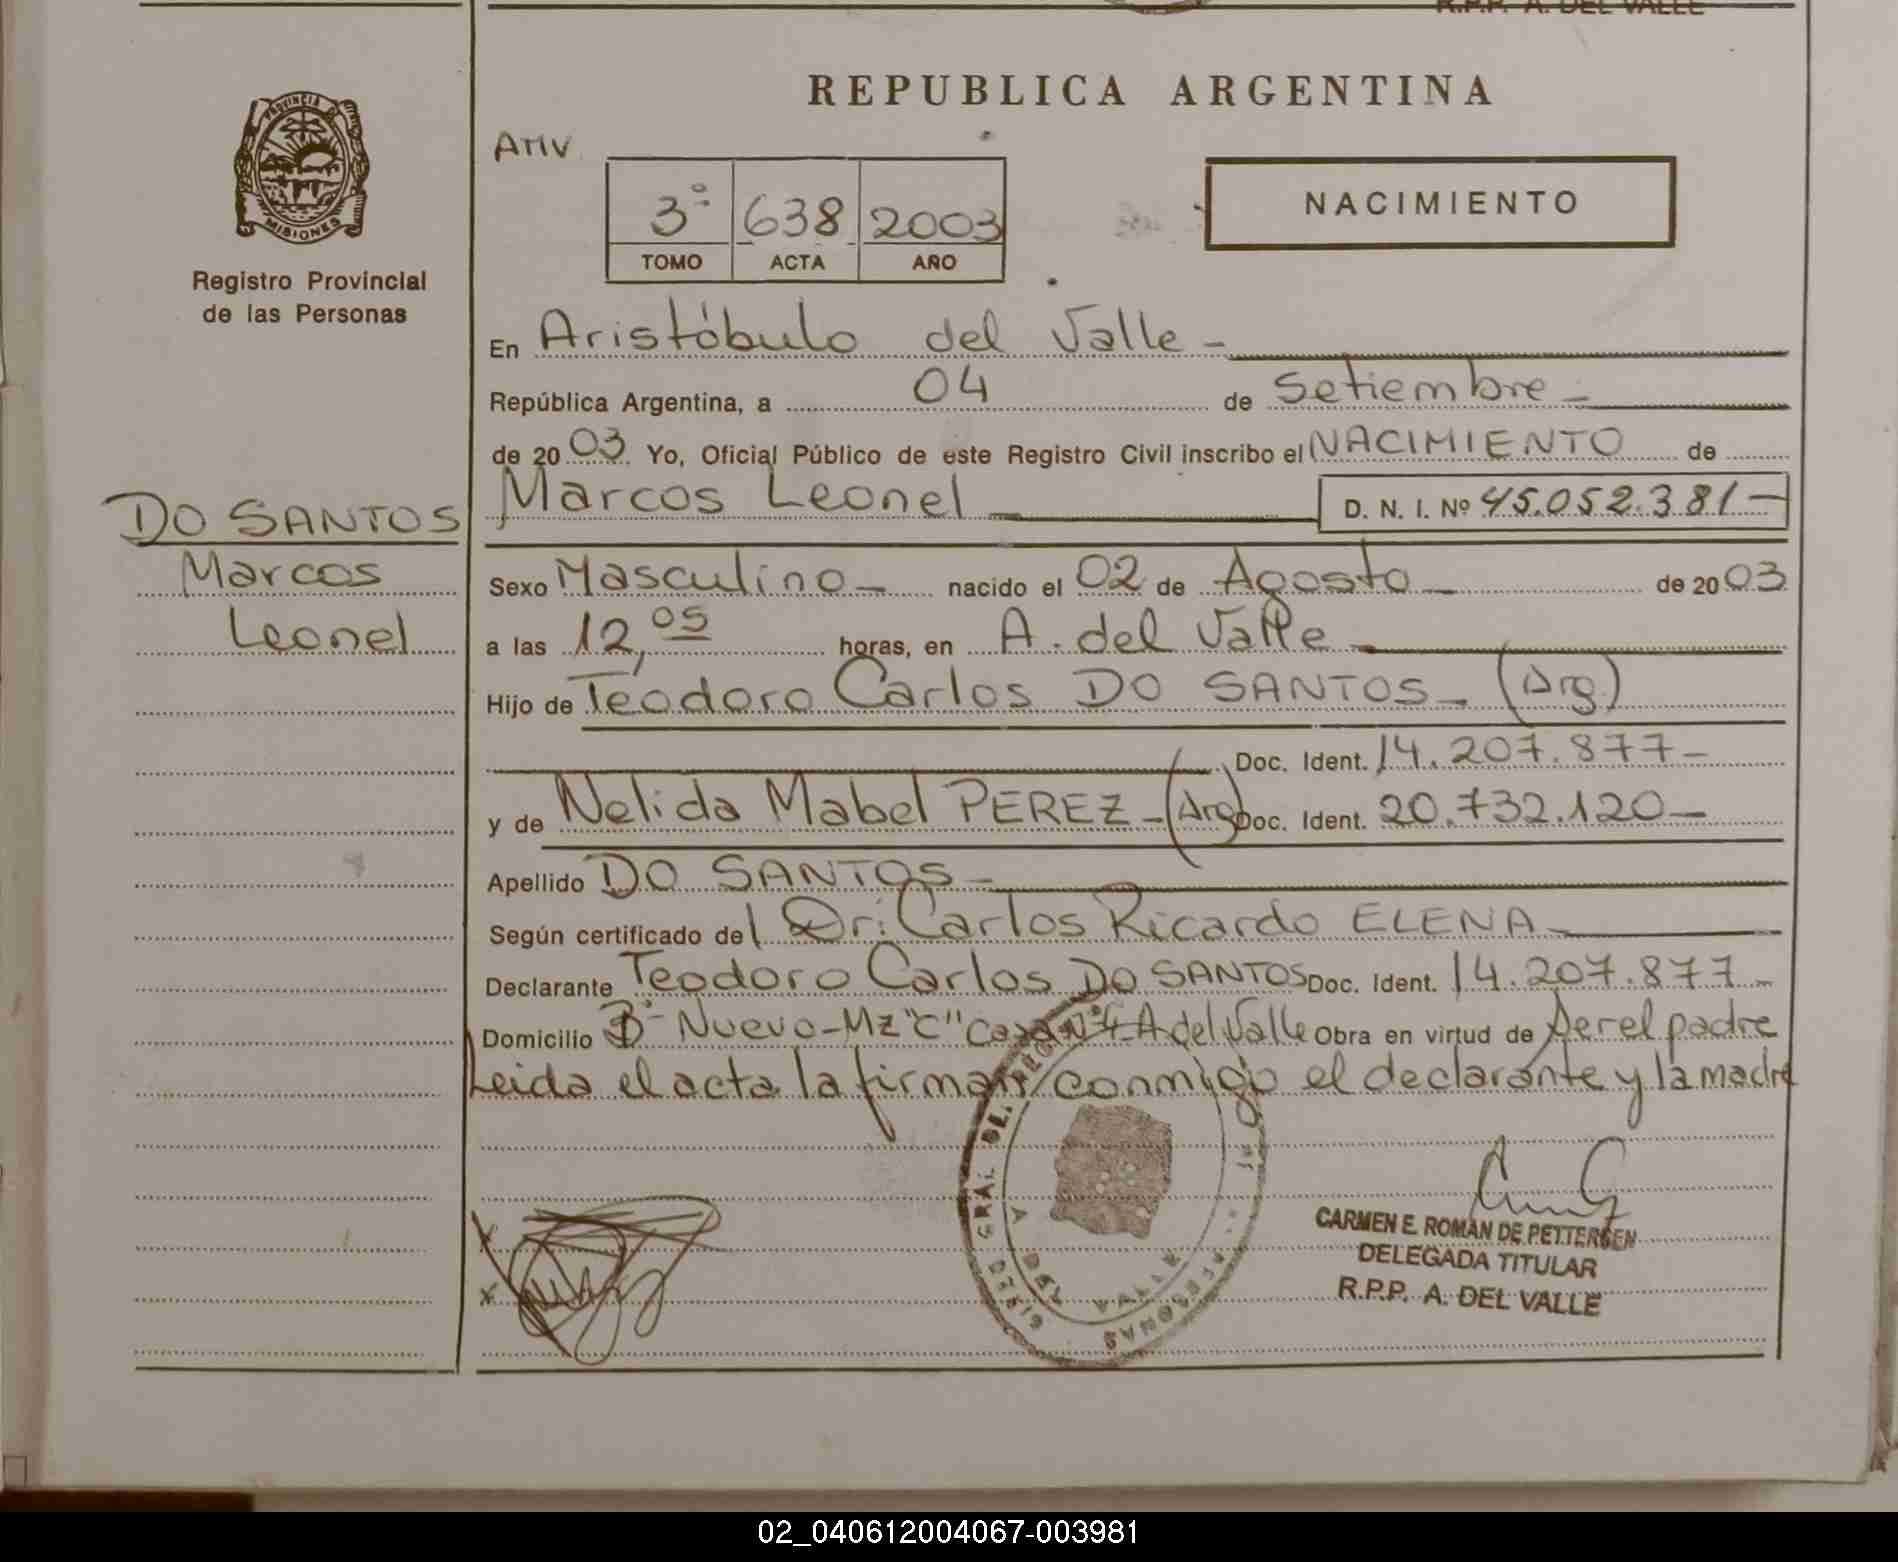 R.P.P. A. DEL VALLE
REPUBLICA ARGENTINA
PROVINCIA DE MISIONES
Registro Provincial
de las Personas
3º 638 2003
TOMO ACTA AÑO
NACIMIENTO
En Aristóbulo del Valle -
República Argentina, a 04 de Setiembre -
de 2003 Yo, Oficial Público de este Registro Civil inscribo el NACIMIENTO de
DO SANTOS
Marcos
Leonel
Marcos Leonel - D. N. I. Nº 45.052.381-
Sexo Masculino - nacido el 02 de Agosto - de 2003
a las 12,05 horas, en A. del Valle -
Hijo de Teodoro Carlos DO SANTOS - (Arg)
Doc. Ident. 14.207.877-
y de Nelida Mabel PEREZ - (Arg) Doc. Ident. 20.732.120-
Apellido DO SANTOS -
Según certificado del Dr: Carlos Ricardo ELENA -
Declarante Teodoro Carlos DO SANTOS Doc. Ident. 14.207.877-
Domicilio Bº Nuevo-Mz "C" Casa Nº 4-A del Valle Obra en virtud de ser el padre
Leida el acta la firman conmigo el declarante y la madre
CARMEN E. ROMAN DE PETTERSEN
DELEGADA TITULAR
R.P.P. A. DEL VALLE
A DEL VALLE
02_040612004067-003981